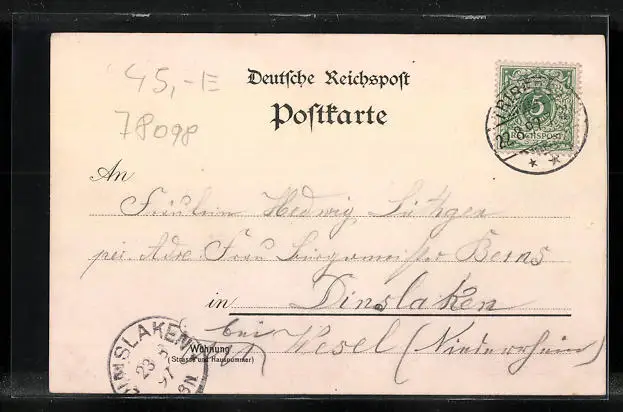 45,-E
78098
Deutsche Reichspost
Postkarte
5
REICHSPOST
An
Fräulein Hedwig
per Adr. Frau Bürgermeister Berns
in Dinslaken
bei Wesel (Niederrhein)
Wohnung
(Strasse und Hausnummer)
DINSLAKEN
23